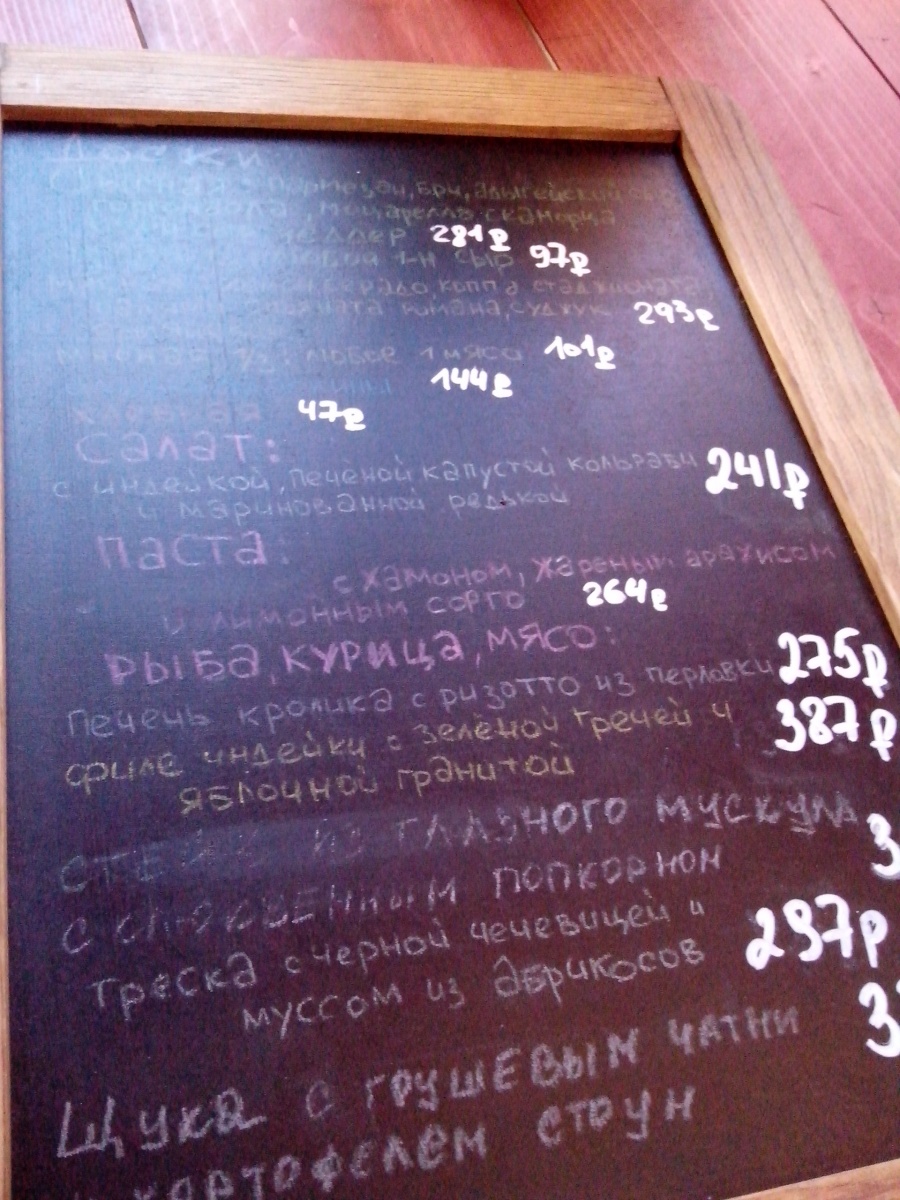 Доски
Сырная: пармезан, бри, адыгейский
моцарелла, скаморца
281₽
1-н сыр 97₽
коппа стаджионата
суджук 293₽
любое 1 мясо 101₽
144₽
хлебная 47₽
Салат:
с индейкой, печёной капустой кольраби 241₽
и маринованной редькой
Паста:
с хамоном, жареным арахисом
и лимонным сорго 264₽
Рыба, курица, мясо:
печень кролика с ризотто из перловки 275₽
филе индейки с зелёной гречей и 387₽
яблочной гранитой
стейк из глазного мускула
с попкорном
треска с черной чечевицей и 297₽
муссом из абрикосов
Щука с грушевым чатни
и картофелем стоун